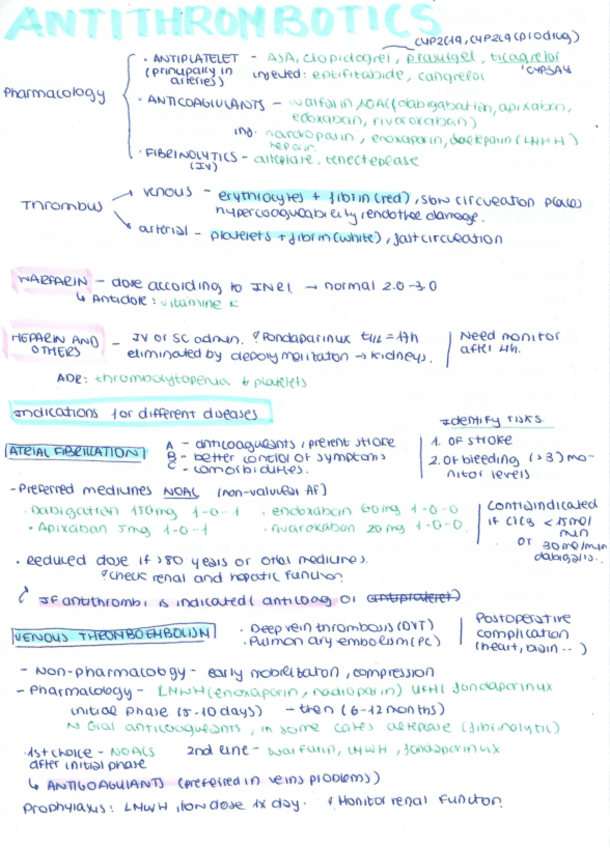 ANTITHROMBOTICS
CYP2C19, CYP2C9 (prodrug)
• ANTIPLATELET - ASA, clopidogrel, prasugel, ticagrelor
(principally in arteries) injected: eptifitabide, cangrelor CYP3A4
Pharmacology
• ANTICOAGULANTS - warfarin, NOAC (dabigatran, apixaban,
edoxaban, rivaroxaban)
inj. nardoparin, enoxaparin, dalteparin (LMWH)
heparin.
• FIBRINOLYTICS - alteplase, tenecteplase
(IV)
Thrombus → venous - erythrocytes + fibrin (red), slow circulation places
hypercoagulability, endothel damage.
arterial - platelets + fibrin (white), fast circulation
WARFARIN - dose according to INR → normal 2.0-3.0
↳ Antidote: vitamine K
HEPARIN AND OTHERS - IV or SC admin. Fondaparinux t1/2 = 17h
eliminated by depolymeritation → kidneys.
Need monitor after 4h.
ADR: thrombocytopenia platelets
Indications for different diseases
Identify risks.
ATRIAL FIBRILLATION
A - anticoagulants, prevent stroke
B - better control of symptoms
C - comorbidities.
1. Of stroke
2. Of bleeding (>3) monitor levels
- Preferred medicines NOAC (non-valvular AF)
• Dabigatran 150mg 1-0-1 • endoxaban 60mg 1-0-0
• Apixaban 5mg 1-0-1 • rivaroxaban 20mg 1-0-0
Contraindicated
if ClCr < 15ml/min
or 30ml/min
• Reduced dose if >80 years or other medicines.
check renal and hepatic function
If antithromb. is indicated (anticoag or antiplatelet)
VENOUS THROMBOEMBOLISM
• Deep vein thrombosis (DVT)
• Pulmonary embolism (PE)
Postoperative
complication
(heart, brain...)
- Non-pharmacology - early mobilitation, compression
- Pharmacology - LMWH (enoxaparin, nadroparin) UFH, fondaparinux
initial phase (5-10 days) - then (6-12 months)
Oral anticoagulants, in some cases alteplase (fibrinolytic)
• 1st choice - NOACS 2nd line - warfarin, LMWH, fondaparinux
after initial phase
↳ ANTICOAGULANTS (preferred in veins problems)
Prophylaxis: LMWH, low dose 1x day. Monitor renal function.